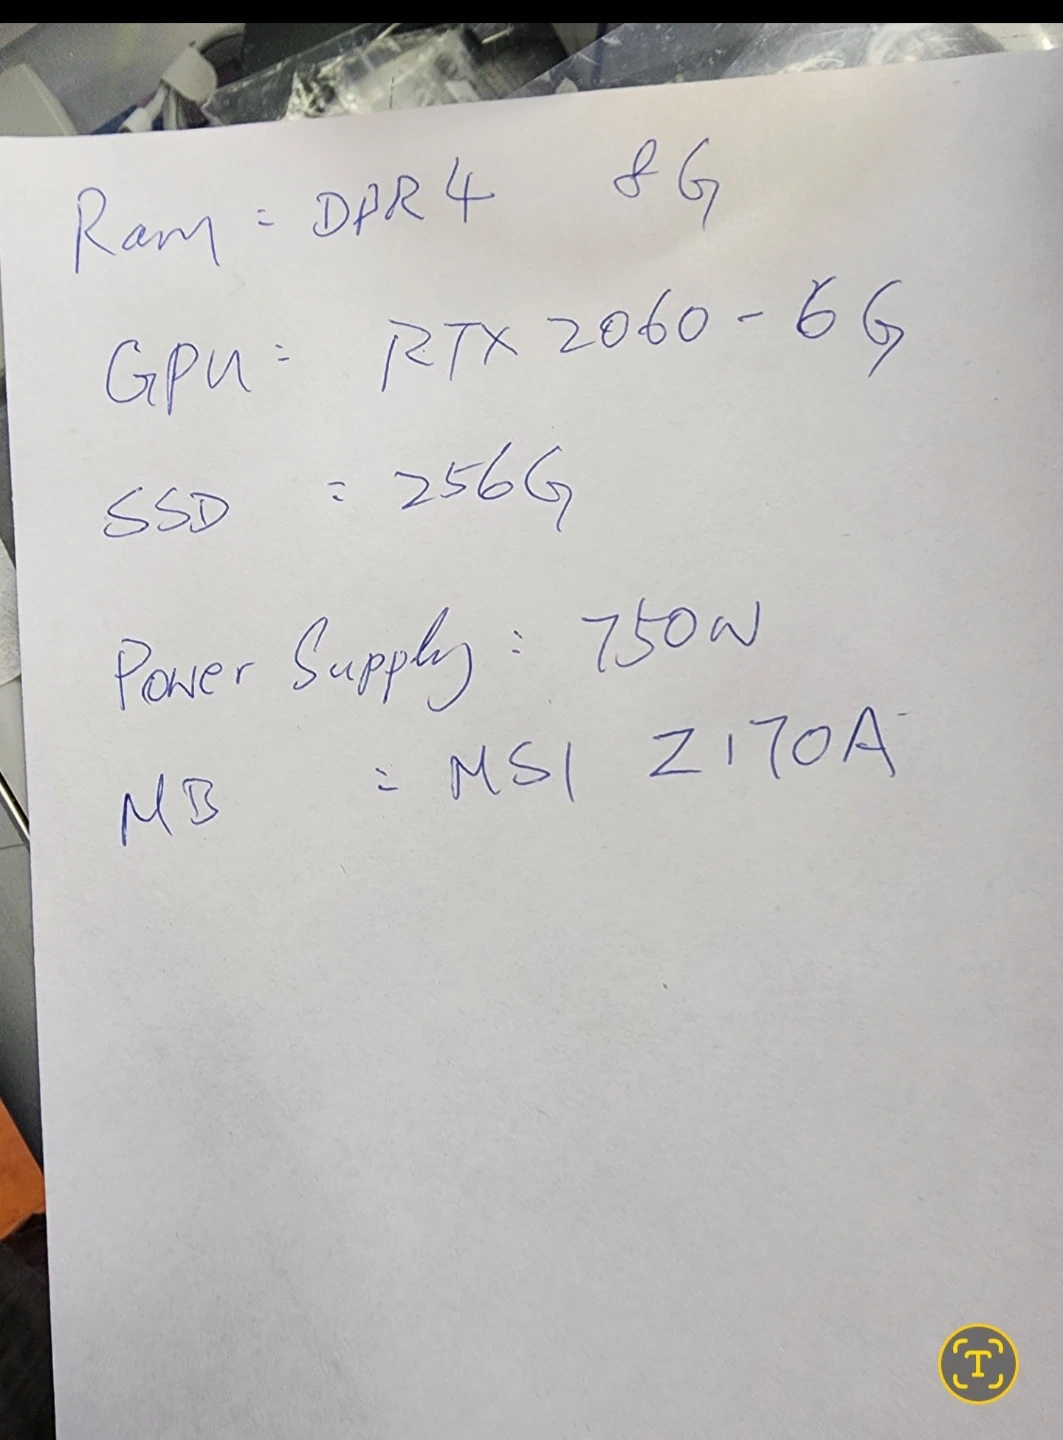 Ram: DDR4 8G
GPU: RTX 2060-6G
SSD : 256G
Power Supply: 750W
MB : MSI Z170A
T